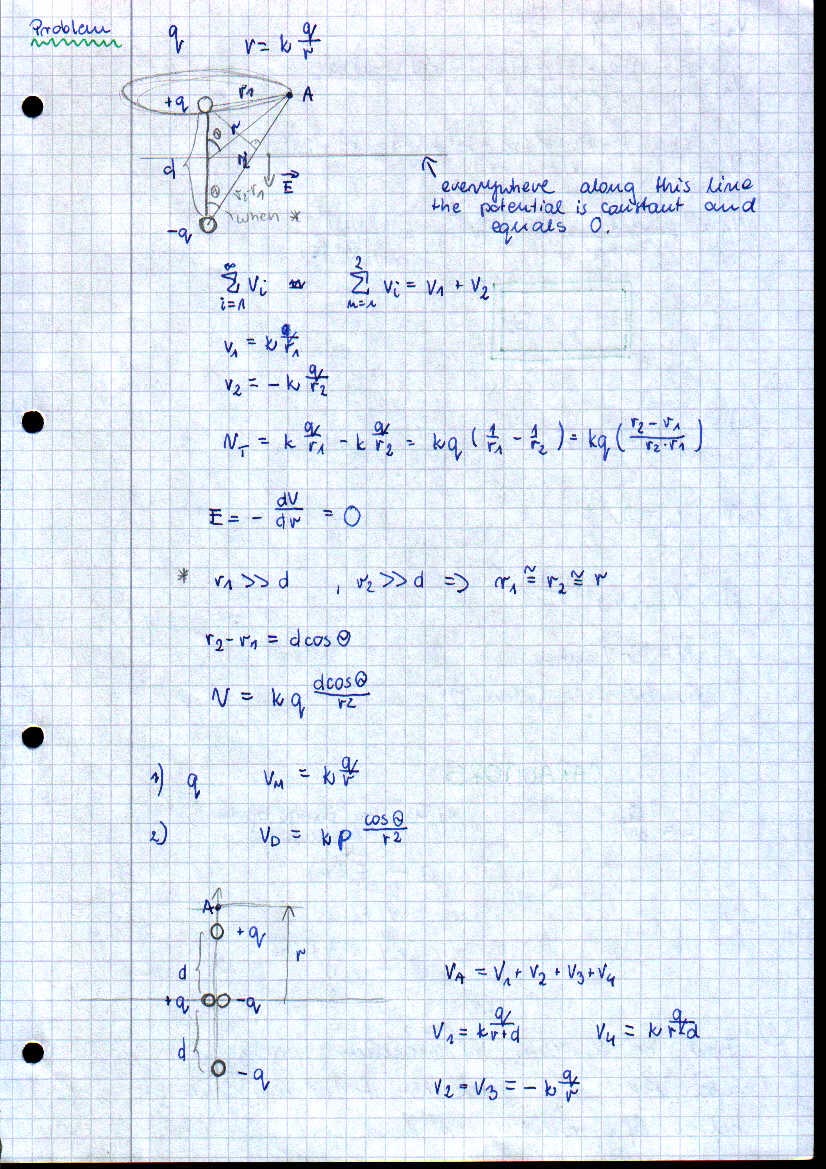 Problem
q V = k q/r
+q r1 A
θ r
d r2
θ r2-r1 E⃗
when *
-q
everywhere along this line
the potential is constant and
equals 0.
∞∑i=1 Vi 2∑n=1 Vi = V1 + V2
V1 = k q/r1
V2 = - k q/r2
VT = k q/r1 - k q/r2 = kq (1/r1 - 1/r2) = kq (r2 - r1 / r2·r1)
E = - dV/dr = 0
* r1 >> d , r2 >> d => r1 ≅ r2 ≅ r
r2 - r1 = d cos θ
V = k q dcosθ/r2
1) q VM = k q/r
2) VD = k p cosθ/r2
A
+q
d r
+q -q
d
-q
VA = V1 + V2 + V3 + V4
V1 = k q/r+d V4 = k
V2 = V3 = - k q/r